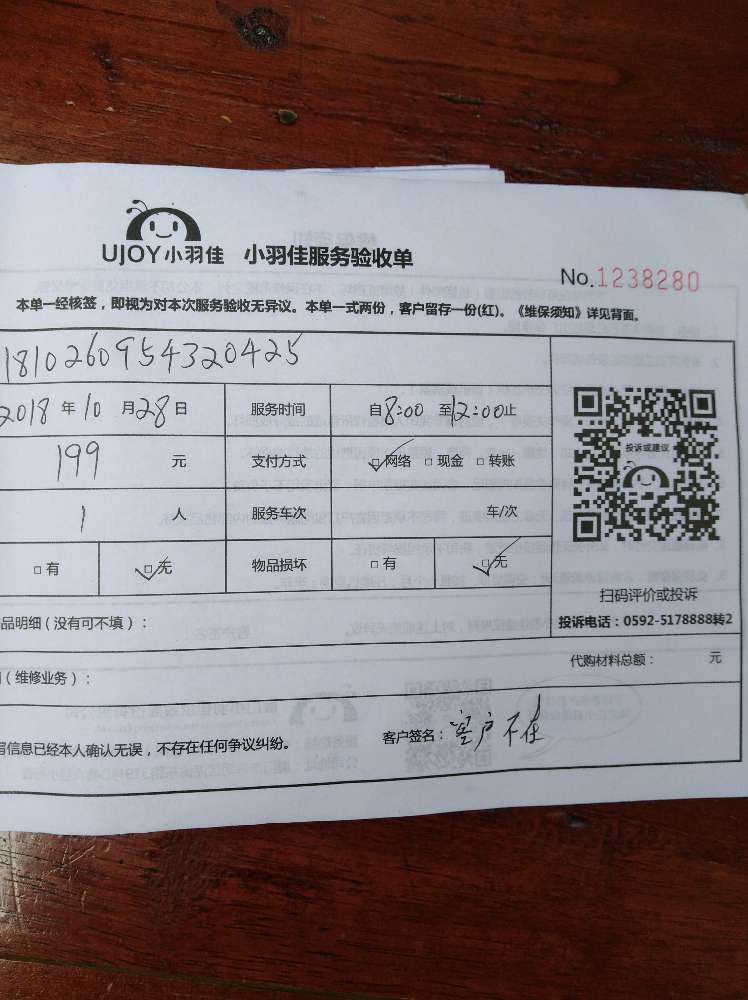 UJOY小羽佳 小羽佳服务验收单
No.1238280
本单一经核签，即视为对本次服务验收无异议。本单一式两份，客户留存一份(红)。《维保须知》详见背面。
1810260954320425
2018 年 10 月 28 日 服务时间 自 8:00 至 12:00 止
199 元 支付方式 ☑网络 □现金 □转账
投诉或建议
1 人 服务车次 车/次
□有 ☑无 物品损坏 □有 ☑无
扫码评价或投诉
品明细（没有可不填）：
投诉电话：0592-5178888转2
（维修业务）：
代购材料总额： 元
写信息已经本人确认无误，不存在任何争议纠纷。 客户签名：客户不在